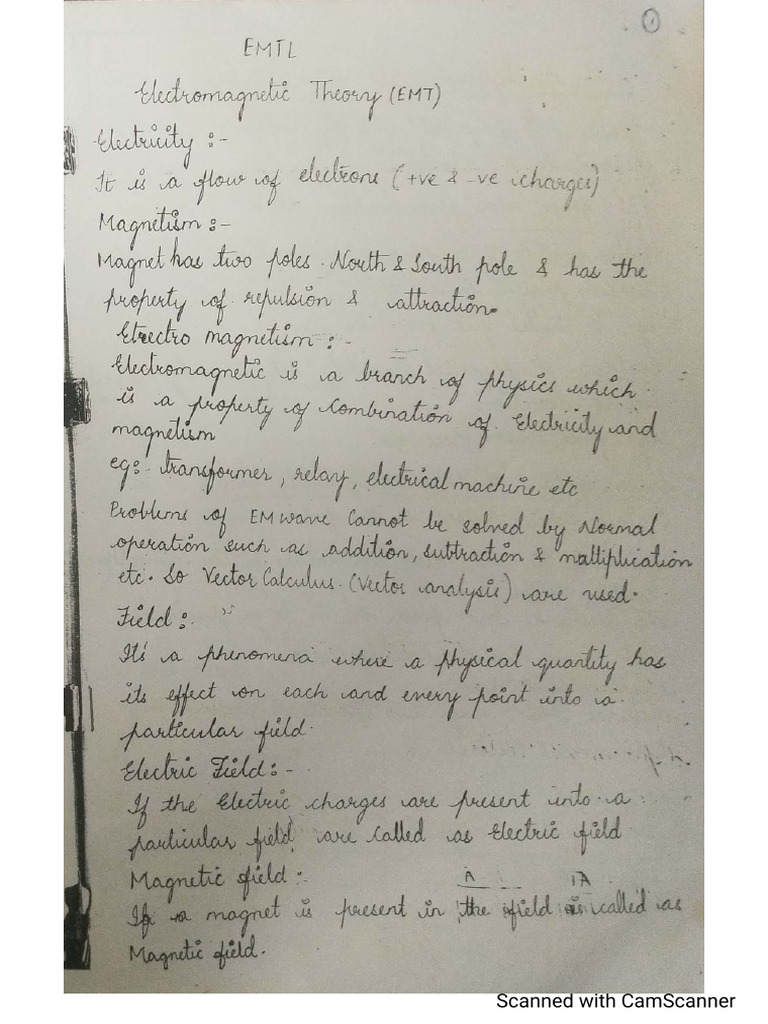 1
EMTL
Electromagnetic Theory (EMT)
Electricity :-
It is a flow of electrons (+ve & -ve charges)
Magnetism :-
Magnet has two poles. North & South pole & has the
property of repulsion & attraction.
Electro magnetism :-
Electromagnetic is a branch of physics which
is a property of Combination of Electricity and
magnetism
eg:- transformer, relay, electrical machine etc
Problems of EM wave Cannot be solved by Normal
operation such as addition, subtraction & multiplication
etc. So Vector Calculus. (Vector analysis) are used.
Field :-
It's a phenomena where a physical quantity has
its effect on each and every point into a
particular field.
Electric Field :-
If the Electric charges are present into a
particular field are called as Electric field
Magnetic field :-
If a magnet is present in the field is called as
Magnetic field.
Scanned with CamScanner